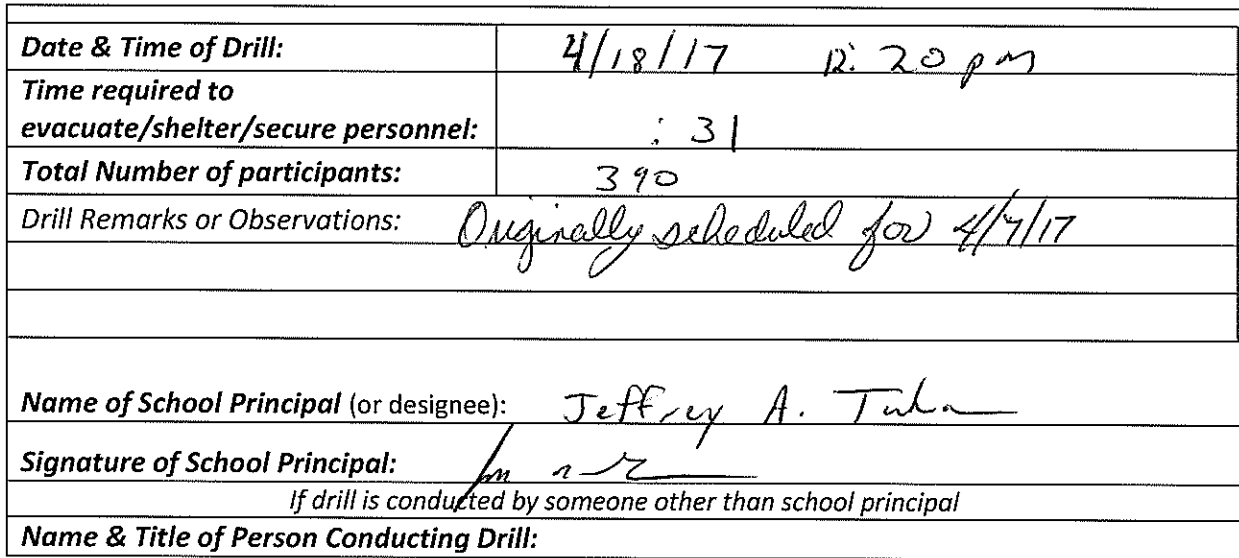 Date & Time of Drill: 4/18/17 12:20 pm
Time required to
evacuate/shelter/secure personnel: :31
Total Number of participants: 390
Drill Remarks or Observations: Originally scheduled for 4/7/17
Name of School Principal (or designee): Jeffrey A.
Signature of School Principal:
If drill is conducted by someone other than school principal
Name & Title of Person Conducting Drill: